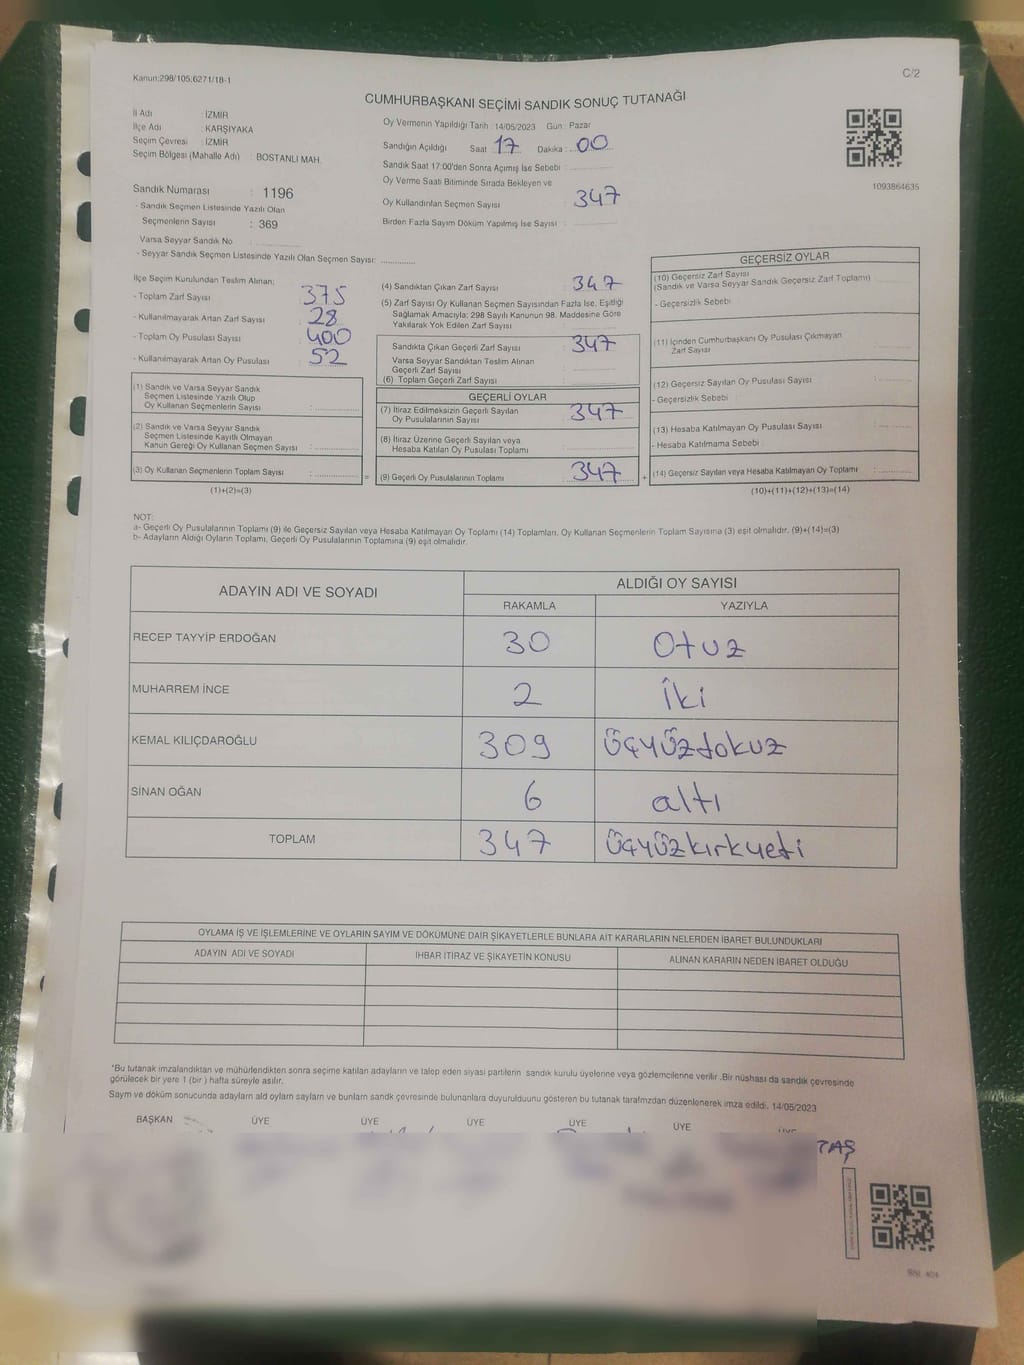 Kanun:298/105;6271/18-1
C/2
CUMHURBAŞKANI SEÇİMİ SANDIK SONUÇ TUTANAĞI
İl Adı : İZMİR
İlçe Adı : KARŞIYAKA
Seçim Çevresi : İZMİR
Seçim Bölgesi (Mahalle Adı) : BOSTANLI MAH.
Oy Vermenin Yapıldığı Tarih : 14/05/2023 Gün : Pazar
Sandığın Açıldığı Saat : 17 Dakika : 00
Sandık Saat 17:00'den Sonra Açımış İse Sebebi :
Oy Verme Saati Bitiminde Sırada Bekleyen ve
Oy Kullandırılan Seçmen Sayısı : 347
Birden Fazla Sayım Döküm Yapılmış İse Sayısı :
1093864635
Sandık Numarası : 1196
- Sandık Seçmen Listesinde Yazılı Olan
Seçmenlerin Sayısı : 369
Varsa Seyyar Sandık No :
- Seyyar Sandık Seçmen Listesinde Yazılı Olan Seçmen Sayısı:
İlçe Seçim Kurulundan Teslim Alınan;
- Toplam Zarf Sayısı : 375
- Kullanılmayarak Artan Zarf Sayısı : 28
- Toplam Oy Pusulası Sayısı : 400
- Kullanılmayarak Artan Oy Pusulası : 52
(1) Sandık ve Varsa Seyyar Sandık
Seçmen Listesinde Yazılı Olup
Oy Kullanan Seçmenlerin Sayısı :
(2) Sandık ve Varsa Seyyar Sandık
Seçmen Listesinde Kayıtlı Olmayan
Kanun Gereği Oy Kullanan Seçmen Sayısı :
(3) Oy Kullanan Seçmenlerin Toplam Sayısı :
(1)+(2)=(3)
(4) Sandıktan Çıkan Zarf Sayısı : 347
(5) Zarf Sayısı Oy Kullanan Seçmen Sayısından Fazla İse, Eşitliği
Sağlamak Amacıyla; 298 Sayılı Kanunun 98. Maddesine Göre
Yakılarak Yok Edilen Zarf Sayısı :
Sandıkta Çıkan Geçerli Zarf Sayısı : 347
Varsa Seyyar Sandıktan Teslim Alınan
Geçerli Zarf Sayısı :
(6) Toplam Geçerli Zarf Sayısı :
GEÇERLİ OYLAR
(7) İtiraz Edilmeksizin Geçerli Sayılan
Oy Pusulalarının Sayısı : 347
(8) İtiraz Üzerine Geçerli Sayılan veya
Hesaba Katılan Oy Pusulası Toplamı :
= (9) Geçerli Oy Pusulalarının Toplamı : 347 +
GEÇERSİZ OYLAR
(10) Geçersiz Zarf Sayısı
(Sandık ve Varsa Seyyar Sandık Geçersiz Zarf Toplamı) :
- Geçersizlik Sebebi :
(11) İçinden Cumhurbaşkanı Oy Pusulası Çıkmayan
Zarf Sayısı :
(12) Geçersiz Sayılan Oy Pusulası Sayısı :
- Geçersizlik Sebebi :
(13) Hesaba Katılmayan Oy Pusulası Sayısı :
- Hesaba Katılmama Sebebi :
(14) Geçersiz Sayılan veya Hesaba Katılmayan Oy Toplamı :
(10)+(11)+(12)+(13)=(14)
NOT:
a- Geçerli Oy Pusulalarının Toplamı (9) ile Geçersiz Sayılan veya Hesaba Katılmayan Oy Toplamı (14) Toplamları, Oy Kullanan Seçmenlerin Toplam Sayısına (3) eşit olmalıdır. (9)+(14)=(3)
b- Adayların Aldığı Oyların Toplamı, Geçerli Oy Pusulalarının Toplamına (9) eşit olmalıdır.
ADAYIN ADI VE SOYADI ALDIĞI OY SAYISI
RAKAMLA YAZIYLA
RECEP TAYYİP ERDOĞAN 30 Otuz
MUHARREM İNCE 2 İki
KEMAL KILIÇDAROĞLU 309 Üçyüzdokuz
SİNAN OĞAN 6 altı
TOPLAM 347 Üçyüzkırkyedi
OYLAMA İŞ VE İŞLEMLERİNE VE OYLARIN SAYIM VE DÖKÜMÜNE DAİR ŞİKAYETLERLE BUNLARA AİT KARARLARIN NELERDEN İBARET BULUNDUKLARI
ADAYIN ADI VE SOYADI İHBAR İTİRAZ VE ŞİKAYETİN KONUSU ALINAN KARARIN NEDEN İBARET OLDUĞU
*Bu tutanak imzalandıktan ve mühürlendikten sonra seçime katılan adayların ve talep eden siyasi partilerin sandık kurulu üyelerine veya gözlemcilerine verilir .Bir nüshası da sandık çevresinde
görülecek bir yere 1 (bir ) hafta süreyle asılır.
Sayım ve döküm sonucunda adayların ald oyların sayları ve bunların sandk çevresinde bulunanlara duyurulduunu gösteren bu tutanak tarafmzdan düzenlenerek imza edildi. 14/05/2023
BAŞKAN ÜYE ÜYE ÜYE ÜYE ÜYE ÜYE
TAŞ